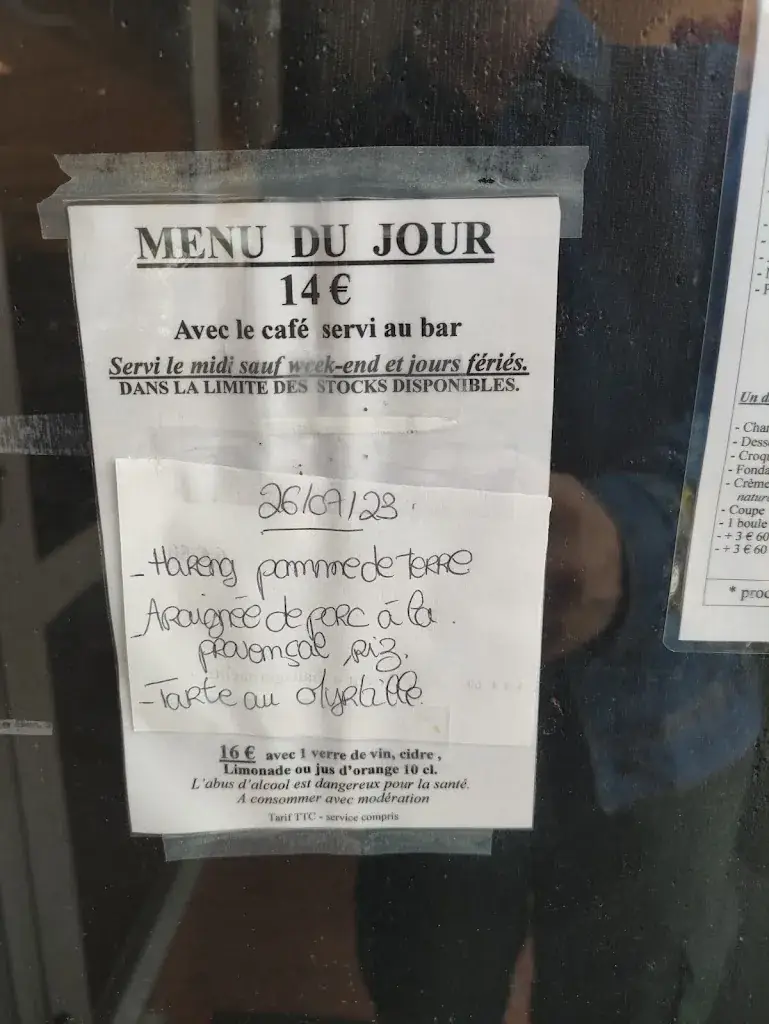 MENU DU JOUR
14 €
Avec le café servi au bar
Servi le midi sauf week-end et jours fériés.
DANS LA LIMITE DES STOCKS DISPONIBLES.
26/07/23
- Hareng pomme de terre
- Araignée de porc à la
provençal riz.
- Tarte au Myrtille
16 € avec 1 verre de vin, cidre,
Limonade ou jus d'orange 10 cl.
L'abus d'alcool est dangereux pour la santé.
A consommer avec modération
Tarif TTC - service compris
Un d
- Char
- Dess
- Croq
- Fonda
- Crème
natur
- Coupe
- 1 boule
- + 3 € 60
- + 3 € 60
* proc